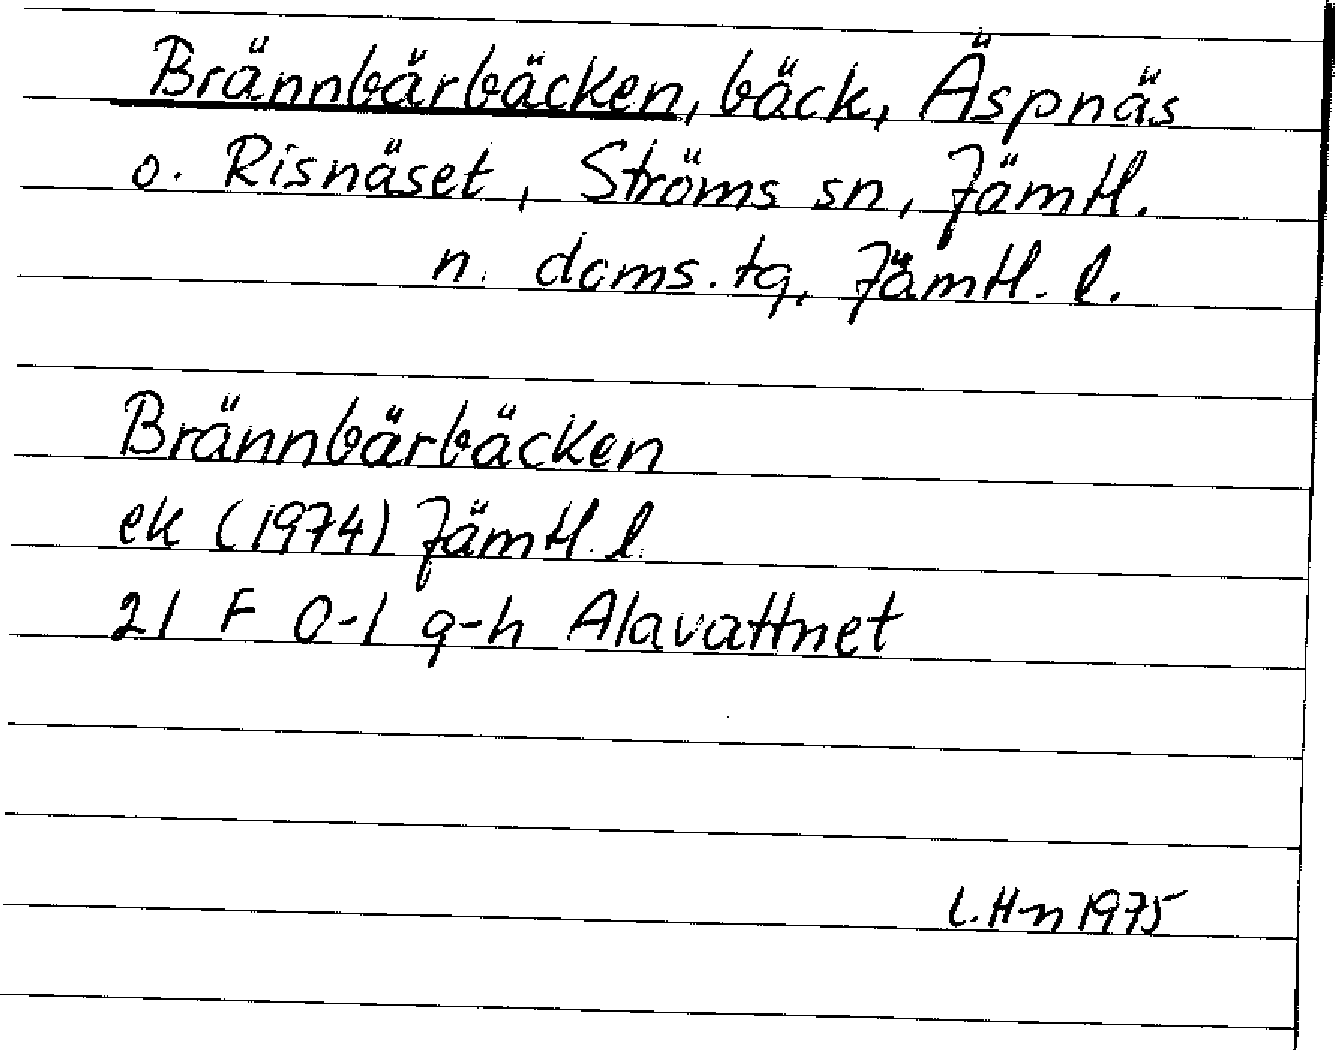 Brännbärbäcken, bäck, Äspnäs
o. Risnäset, Ströms sn, Jämtl.
n. doms.tg, Jämtl. l.
Brännbärbäcken
ek (1974) Jämtl. l.
21 F 0-1 g-h Alavattnet
L.H-n 1975